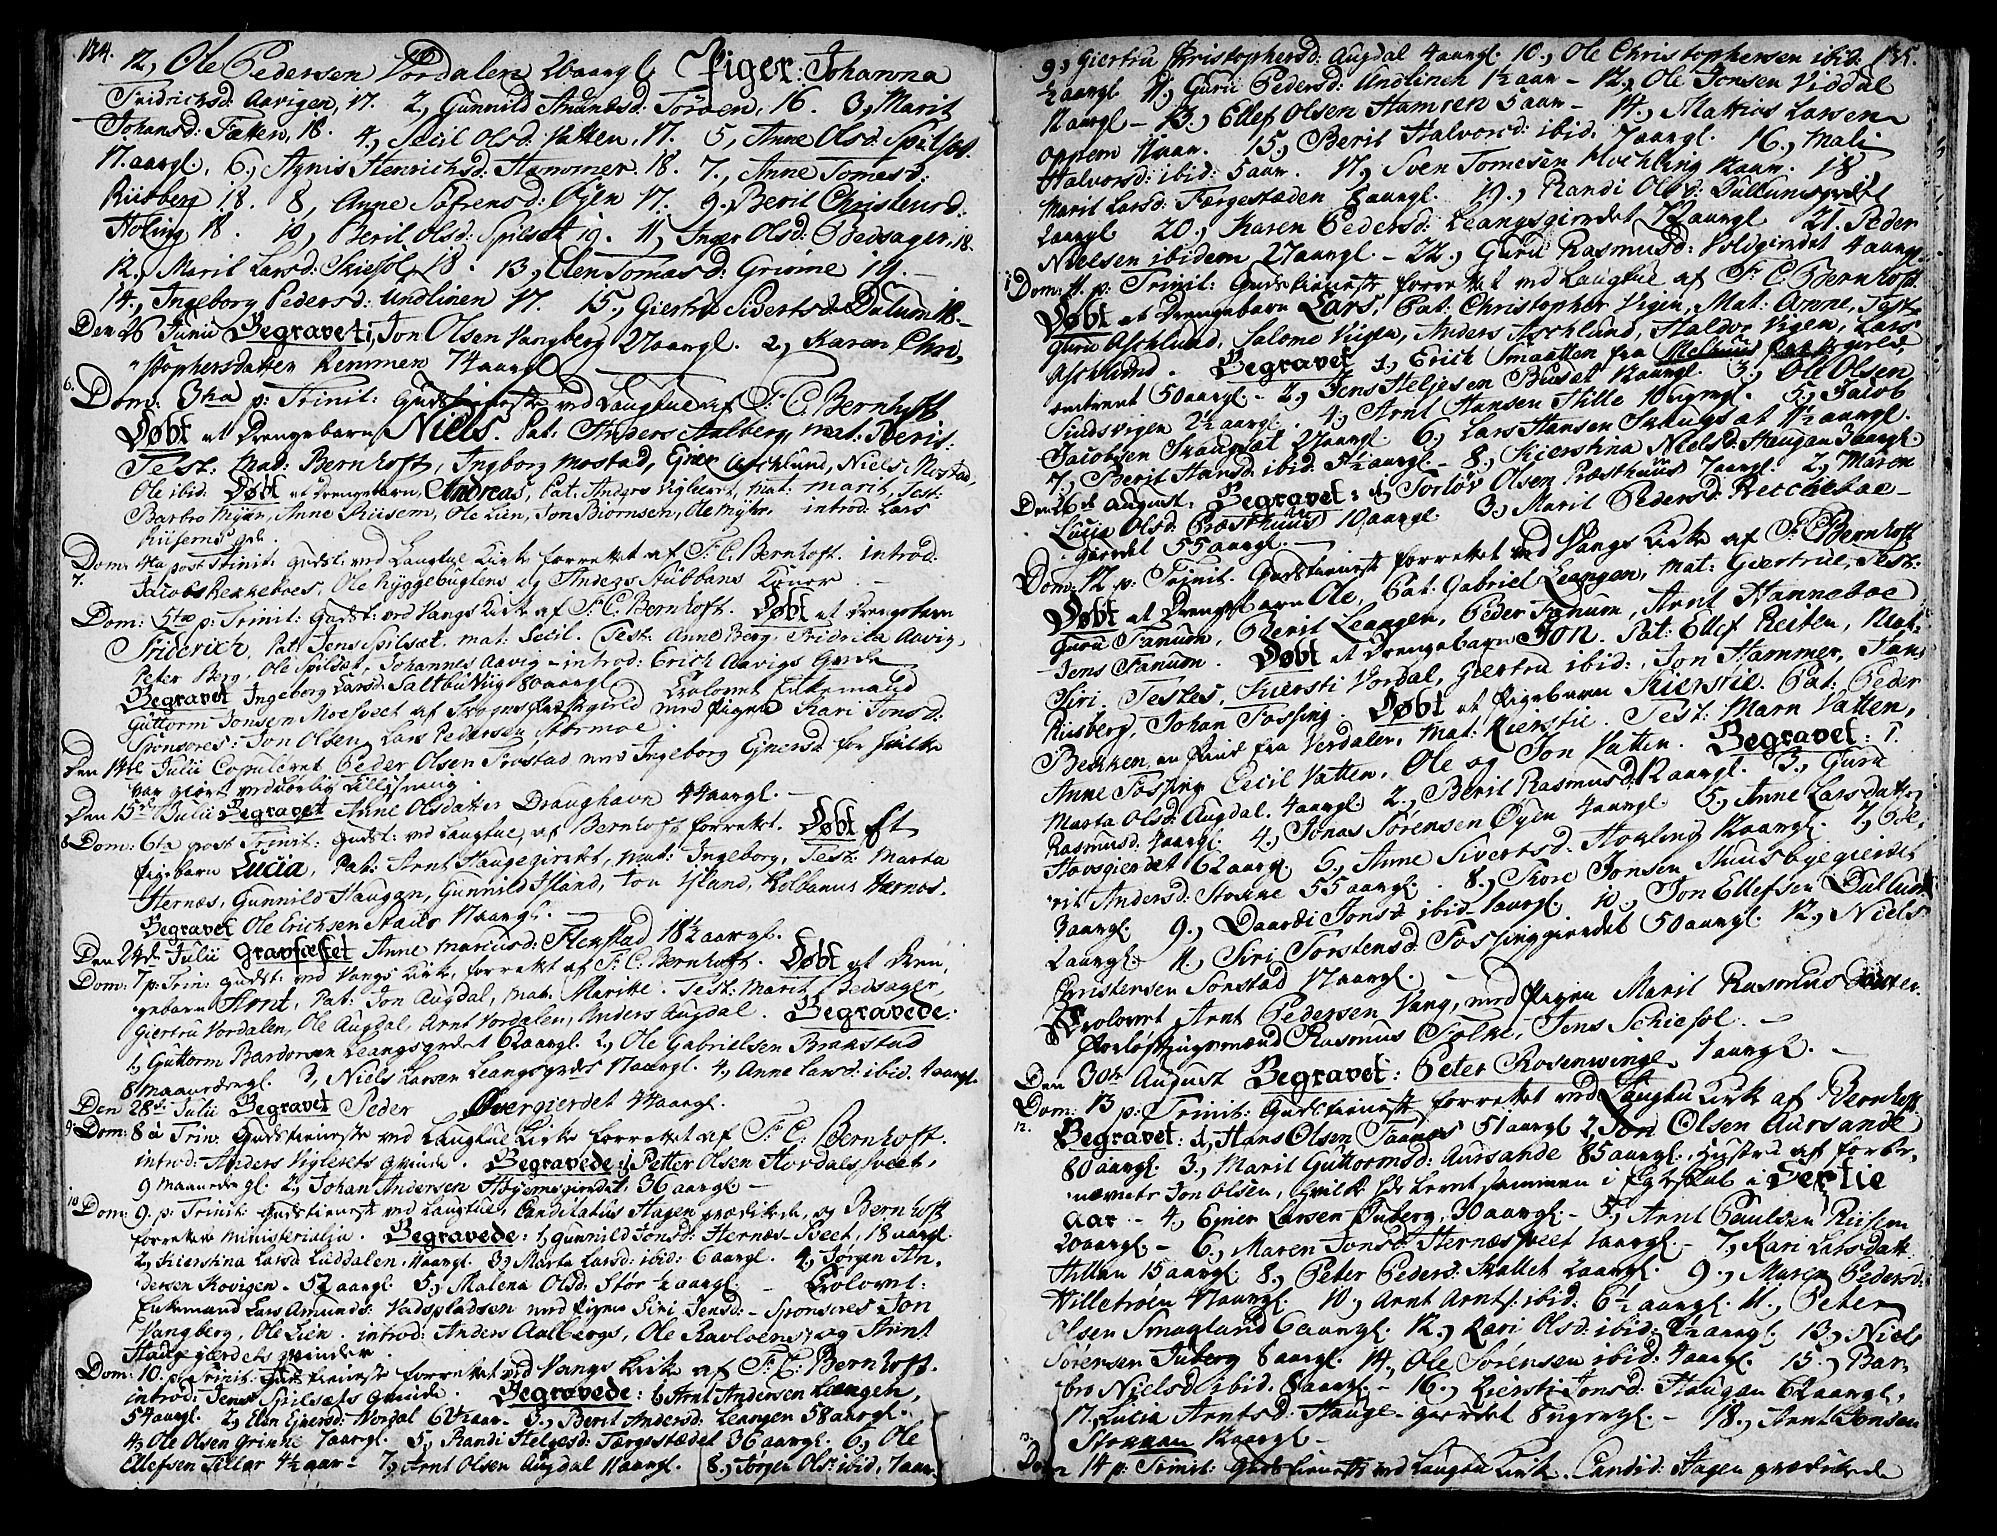 134.
12, Ole Pedersen Vordalen 20 aargl. Piger: Johanna
Fridrichsd: Aavigen, 17. 2, Gunnild Amundsd: Torven, 16. 3, Marit
Johansd: Fætten, 18. 4, Secil Olsd: Vatten, 17. 5, Anne Olsd: Spilset
17 aargl. 6, Agnis Henrichsd: Hammer. 18. 7, Anne Tomasd:
Riisberg 18. 8, Anne Sefrensd: Øyen 17. 9, Beril Christensd:
Holing 18. 10, Beril Olsd: Spilset 19. 11, Inger Olsd: Bedsager, 18.
12, Maril Larsd: Skiefol, 18. 13, Elen Tomasd: Grinne 19.
14, Ingeborg Pedersd: Undlinen 17. 15, Giertru Sivertsd: Dalum 18.
Den 26 Junii Begravet: Jon Olsen Vangberg 27 aargl. 2, Karen Chri-
stophersdatter Remmen 74 aargl.
6. Dom: 3tia p: Trinit: Gudstieneste ved Laugtue af S: C: Bernhoft
Døbt et Drengebarn Niels. Pat: Anders Aalberg, mat: Berit.
Test: Mad: Bernhoft, Ingborg Mostad, Aschlund, Niels Mostad,
Ole ibid. Døbt et Drengebarn Andreas, Pat: Anders Viglevet, mat: Marit, Test:
Barbro Myhr, Anne Kiisem, Ole Lien, Jon Biornsen, Ole Myhr. introd: Lars
7. Dom: 4ta post Trinit: Gudst: ved Laugtue Kirke forrettet af S: C: Bernhoft. introd:
Jacob Rekkeboes, Ole Ryggebugtens og Anders Stubbans Koner.
Dom: 5ta p: Trinit: Gudst: ved Vangs Kirke af S: C: Bernhoft. Døbt et Drengebarn
Friderich, Pat: Jens Spilset. mat: Secil. Test: Anne Berg, Fridrica Aavig,
Peter Berg, Ole Spilset, Johannes Aavig – introd: Erich Aavigs Qvinde
Begravet Ingeborg Larsd: Saltbuviig 80 aargl. Trolovet Enkemand
Guttorm Jonsen Moeset af Skogns Præstegield med Pigen Kari Jonsd:
Sponsores: Jon Olsen, Lars Pedersen Stormoe.
Den 14de Julii Copuleret Peder Olsen Trostad med Ingeborg Ejnersd: for hvilke
var giort vedbørlig Lillysning
Den 15de Julii Begravet Anne Olsdatter Draughavn 44 aargl.
8 Dom: 6ta post Trinit: Gudst: ved Laugtue, af Bernhoft forrettet. Døbt Et
Pigebarn Lucia, Pat: Arnt Haugegierdet, mat: Ingeborg, Test: Marta
Hernæs, Gunnild Haugan, Gunnild Island, Jon Island, Kolbanus Hernæs.
Begravet Ole Erichsen Staur 17 aargl.
Den 24de Julii Gravfæstet Anne Marcusd: Flekstad 18½ aargl.
Dom: 7 p: Trin: Gudst: ved Vangs Kirke, forrettet af S: C: Bernhoft. Døbt et Dren-
gebarn Arnt, Pat: Jon Augdal, mat: Maritte. Test: Marit Bedsager,
Giertru Vordalen, Ole Augdal, Arnt Vordalen, Anders Augdal. Begravede:
1, Guttorm Bardorsen Leangsgierdet 62 aargl. 2, Ole Gabrielsen Brakstad
8 Maanedergl. 3, Niels Larsen Leangsgierdet 17 aargl. 4, Anne Larsd: ibid. 4 aargl.
Den 28de Julii Begravet Peder Øvergierdet 44 aargl.
9. Dom: 8a Trin: Gudstieneste ved Laugtue Kirke forrettet af S: C: Bernhoft.
introd: Anders Viglevets Qvinde. Begravede: 1, Petter Olsen Hordalssveet,
9 maanedergl. 2, Johan Andersen Hojemsgierdet: 36 aargl. –
10 Dom: 9. p: Trinit: Gudstieneste ved Laugtue, Candidatus Hagen prædikede, og Bernhoft
forrettede ministerialia. Begravede: 1, Gunnild Jonsd: Hernæs-Sveet, 18 aargl.
2, Kierstina Larsd Luddalen, aargl. 3, Marta Larsd: ibid: 6 aargl. 4, Jorgen An-
dersen Kovigen – 57 aargl. 5, Malena Olsd: Stor ½ aargl. Trolovet:
Enkemand Lars Amunds: Vadspladsen med Pigen Siri Jensd: – Sponsores Jon
Vangberg, Ole Lien. introd: Anders Aalbergs, Ole Ravloens og Arnt
Haugegierdets Qvinder.
Dom: 10. p: Trinit: Gudstieneste forrettet ved Vangs Kirke af S: C: Bernhoft.
introd: Jens Spilsets Qvinde. Begravede: 1, Arnt Andersen Leangen,
54 aargl. 2, Elen Ejnersd: Vordal 62½ aar – 3, Berit Andersd: Leangen 58 aargl.
4, Ole Olsen Grinne 7 aargl. 5, Randi Helgesd: Færgestædet 36 aargl. 6, Ole
Ellefsen Tiller 4½ aar – 7, Arnt Olsen Augdal 11 aargl. 8, Jorgen Ols: ibid, 7 aar
135.
9, Giertru Christophersd: Augdal 4 aargl. 10, Ole Christophersen ibid:
½ aargl 11, Guru Pedersd: Undlinen 1½ aar – 12, Ole Jonsen Viddal
12 aargl – 13, Ellef Olsen Hamren 5 aar – 14, Mattias Larsen
Oppem 11 aar. 15, Berit Halvorsd: ibid: 7 aargl. 16, Mali
Halvorsd: ibid: 5 aar. 17, Sven Tomesen Mochling 12 aar. 18
Marit Larsd: Færgestæden 8 aargl. 19, Randi Olsd: Dullumsgierdet
2 aargl 20, Karen Pedersd: Leangsgierdet 72 aargl 21. Peder
Nielsen ibidem 27 aargl. – 22, Guru Rasmusd: Voldgierdet 4 aargl.
Dom: 11. p: Trinit: Gudstieneste forrettet ved Laugtue af S: C: Bernhoft.
Døbt et Drengebarn Lars, Pat: Christopher Vigen, Mat: Anne, Test:
Guru Aschlund, Salome Vigen, Anders Aschlund, Haldor Vigen, Lars
Aschlund. Begravet 1, Erich Smaatten fra Melhuus Præstegield,
omtrent 50 aargl. – 2, Jens Heljesen Buset 12 aargl. 3, Ole Olsen
Sundsvigen 2½ aargl. 4, Arnt Hansen Hille 10 ugergl. 5, Jacob
Jacobsen Skaugset 24 aargl. 6, Lars Hansen Skaugset 11½ aargl.
7, Berit Hansd: ibid: 5½ aargl – 8, Kierstina Nielsd: Haugan 3 aargl.
Den 26de August, Begravet: 1, Torlov Olsen Præsthuus 7 aargl. 2, Maren
Lucia Olsd: Præsthuus 10 aargl. 3, Maril Pedersd: Retcheboe-
gierdet 55 aargl.
Dom: 12 p: Trinit: Gudstieneste forrettet ved Vangs Kirke af S: Bernhoft
Døbt et Drengebarn Ole, Pat: Gabriel Leangen, mat: Giertrue, Test:
Guru Fanum, Berit Leangen, Peder Fanum, Arnt Hanneboe
Jens Fanum. Døbt et Drengebarn Jon. Pat: Ellef Reiten, Mat:
Siri. Testes, Kiersti Vordal, Giertru ibid:, Jon Hammer, Hans
Riisberg, Johan Fossing. Døbt et Pigebarn Kierstie. Pat: Peder
Bekken, en Find fra Verdalen, mat: Kierstie. Test: Marn Vatten,
Anne Fossing Cecil Vatten, Ole og Jon Vatten. Begravet: 1.
Marta Olsd: Augdal. 4 aargl. 2, Beril Rasmusd: 12 aargl. 3, Guru
Rasmusd: 4 aargl. 4, Jonas Sørensen Øyen 4 aargl 5, Anne Larsdatter
Hovsgierdet 62 aargl 6, Anne Sivertsd: Hokling 12 aargl. 7, Be-
rit Andersd: Stokke 55 aargl. 8, Tore Jonsen Huusbyegierdet
3 aargl. 9, Daardi Jonsd ibid 1 aargl. 10, Jon Ellefsen Dullum
2 aargl. 11, Siri Torstensd Fossinggierdet 50 aargl. 12, Niels
Christersen Sonstad 17 aargl.
Trolovet Arnt Pedersen Vang, med Pigen Maril Rasmusdatter.
Forlovtningsmænd Rasmus Folke, Jens Schiefol. –
Den 30te August Begravet: Peter Rosenwinge 1 aargl. –
Dom: 13 p: Trinit: Gudstieneste forrettet ved Laugtu Kirke af Bernhoft
12. Begravet: 1, Hans Olsen Faanes 51 aargl 2, Jon Olsen Aursande
80 aargl. 3, Maril Guttormsd: Aursande 85 aargl. Hustru af forbe-
nævnte Jon Olsen, hvilke har levet sammen i Egteskab i Sextie
Aar – 4, Ejner Larsen Juberg, 30 aargl – 5, Arnt Paulsen Riisem
20 aargl. – 6, Maren Jonsd: Hernæssveet 1 aargl – 7, Kari Larsdatt.
Hillan 15 aargl. 8, Peter Peders: Skallet 2 aargl. 9, Maren Pedersd:
Villetrøen 47 aargl. 10, Arnt Arnts: ibid: 6½ aargl. 11, Peter
Olsen Smagland 6 aargl. 12, Kari Olsd: ibid: ½ aargl. 13, Niels
Sørensen Juberg 8 aargl. 14, Ole Sørensen ibid: 4 aargl. 15, Bar-
bro Nielsd ibid. 8 aargl – 16, Kiersti Jonsd: Haugan 62 aargl.
17. Lucia Arntsd: Hauge-gierdet 8 ugergl. – 18, Arnt Jonsen
Stokkan 12 aargl –
Dom 14 p: Trinit: Gudstieneste ved Laugtu Kirke. Candid: Hagen prædikede